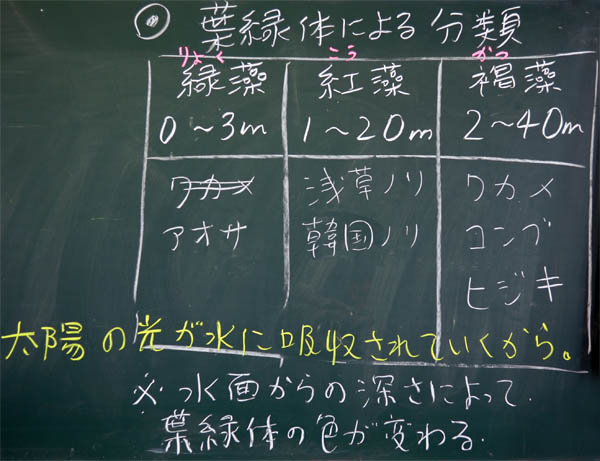 ◎ 葉緑体による分類
りょく こう かつ
緑藻 紅藻 褐藻
0～3m 1～20m 2～40m
ワカメ 浅草ノリ ワカメ
アオサ 韓国ノリ コンブ
ヒジキ
太陽の光が水に吸収されていくから。
※水面からの深さによって.
葉緑体の色が変わる.